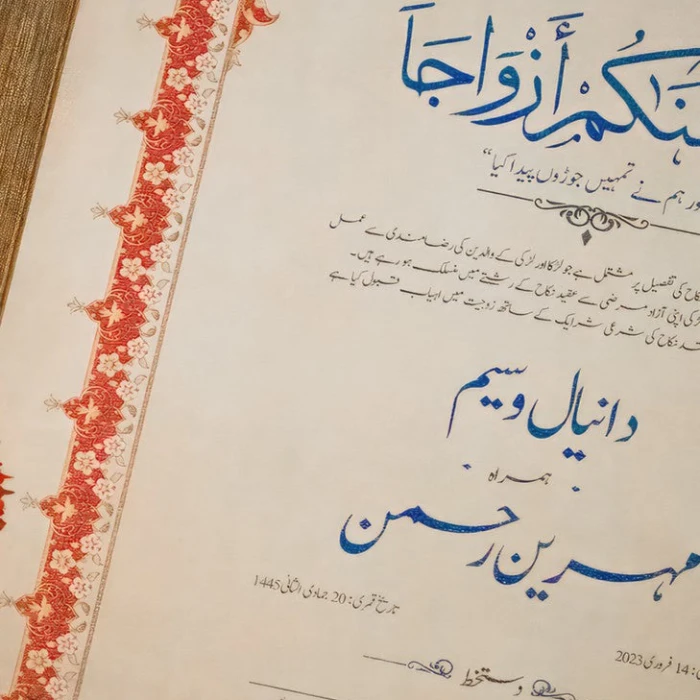 أَزْوَاجًا
ہم نے تمہیں جوڑوں پیدا کیا“
کی تفصیل پر مشتمل ہے جو لڑکا اور لڑکی کے والدین کی رضامندی سے عمل
کی اپنی آزاد مرضی سے عقید نکاح کے رشتے میں منسلک ہو رہے ہیں۔
نکاح کی شرعی شرایک کے ساتھ زوجیت میں ایہاب قبول کیا ہے
دانیال وسیم
ہمراہ
مہرین رحمن
تاریخ قمری: 20 جمادی الثانی 1445
14 فروری 2023
دستخط